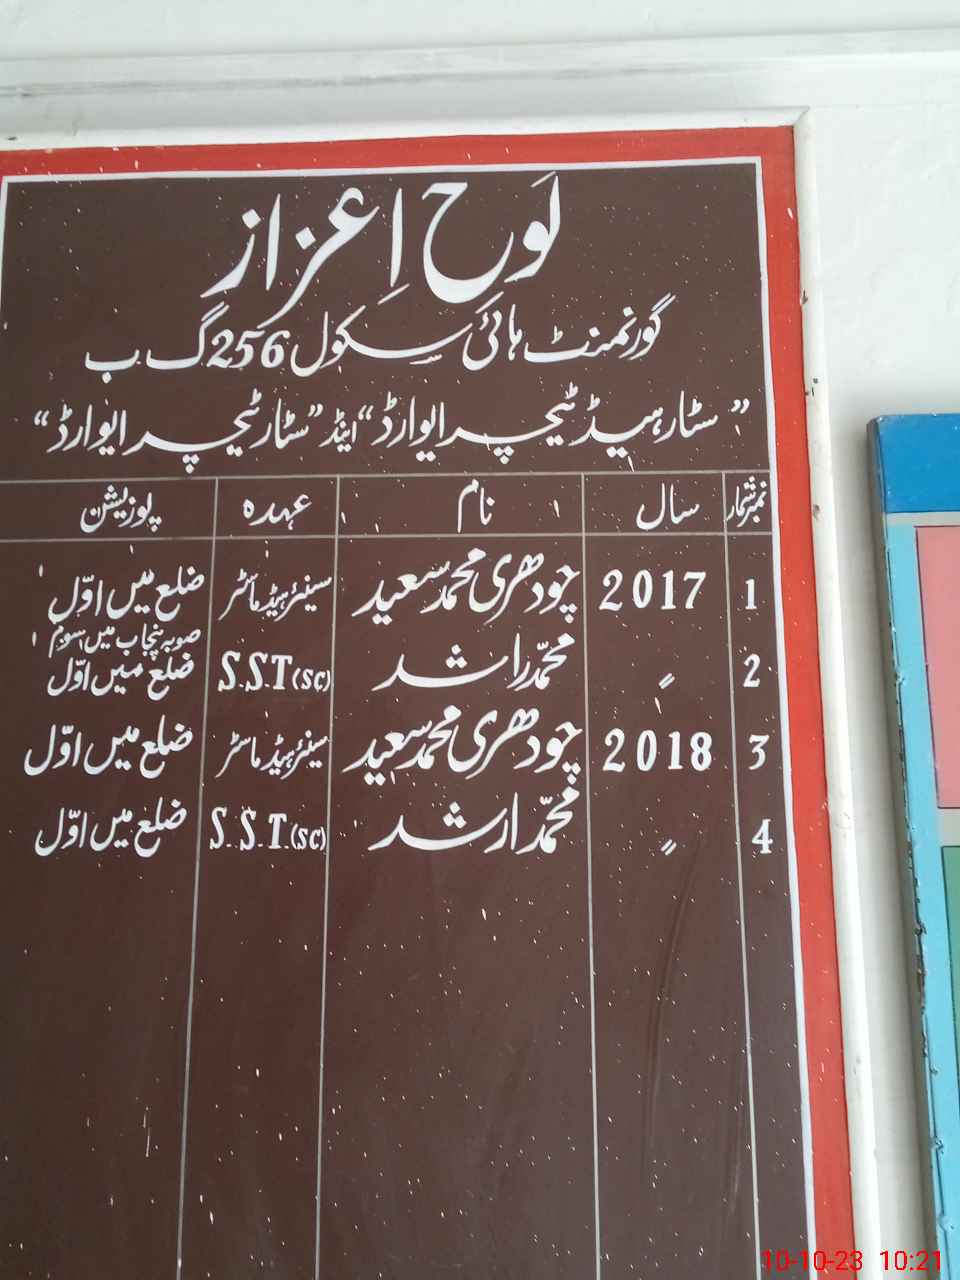 لَوحِ اِعزاز
گورنمنٹ ہائی سکول 256 گ ب
”سٹار ہیڈ ٹیچر ایوارڈ“ اینڈ ”سٹار ٹیچر ایوارڈ“
نمبر شمار سال نام عہدہ پوزیشن
1 2017 چودھری محمد سعید سینئر ہیڈ ماسٹر ضلع میں اوّل
صوبہ پنجاب میں سوم
2 〃 محمّد راشد S.S.T(SC) ضلع میں اوّل
3 2018 چودھری محمد سعید سینئر ہیڈ ماسٹر ضلع میں اوّل
4 〃 محمّد ارشد S.S.T.(SC) ضلع میں اوّل
10-10-23 10:21